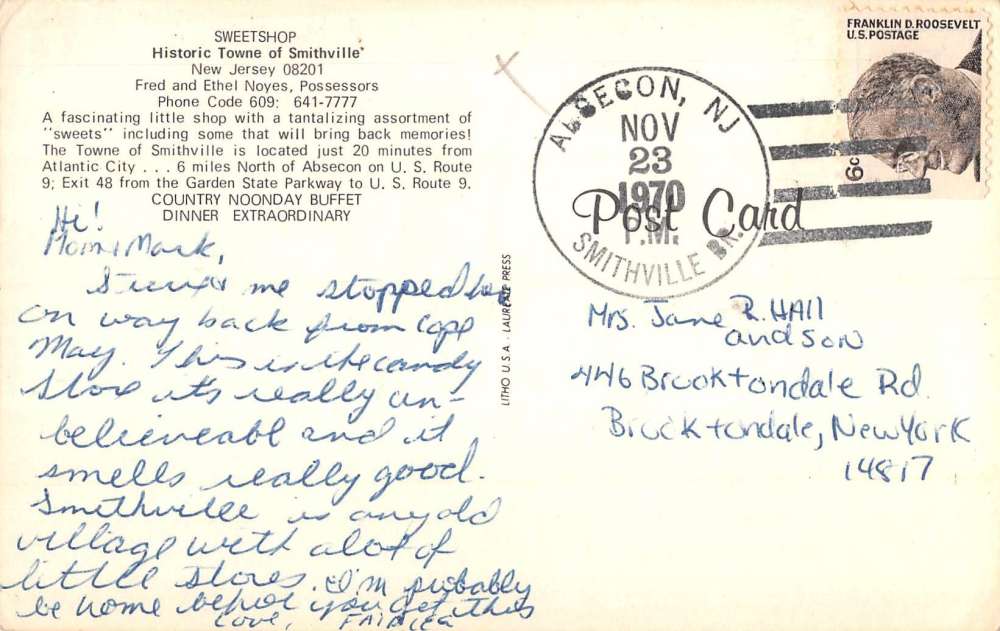 SWEETSHOP
Historic Towne of Smithville*
New Jersey 08201
Fred and Ethel Noyes, Possessors
Phone Code 609: 641-7777
A fascinating little shop with a tantalizing assortment of
"sweets" including some that will bring back memories!
The Towne of Smithville is located just 20 minutes from
Atlantic City . . . 6 miles North of Absecon on U. S. Route
9; Exit 48 from the Garden State Parkway to U. S. Route 9.
COUNTRY NOONDAY BUFFET
DINNER EXTRAORDINARY
Hi!
Mom & Mark,
me stopped here
on way back from Cape
May. This is the candy
store its really un-
believeabl and it
smells really good.
Smithville is any old
village with alot of
little stores. I'm probably
be home befor you get this
Love,
LITHO U.S.A. . LAUREATE PRESS
FRANKLIN D. ROOSEVELT
U.S. POSTAGE
6c
ABSECON, NJ
NOV
23
1970
P.M.
SMITHVILLE BR.
Post Card
Mrs. Jane R. HAll
and SoN
446 Brooktondale Rd.
Brocktondale, NewYork
14817